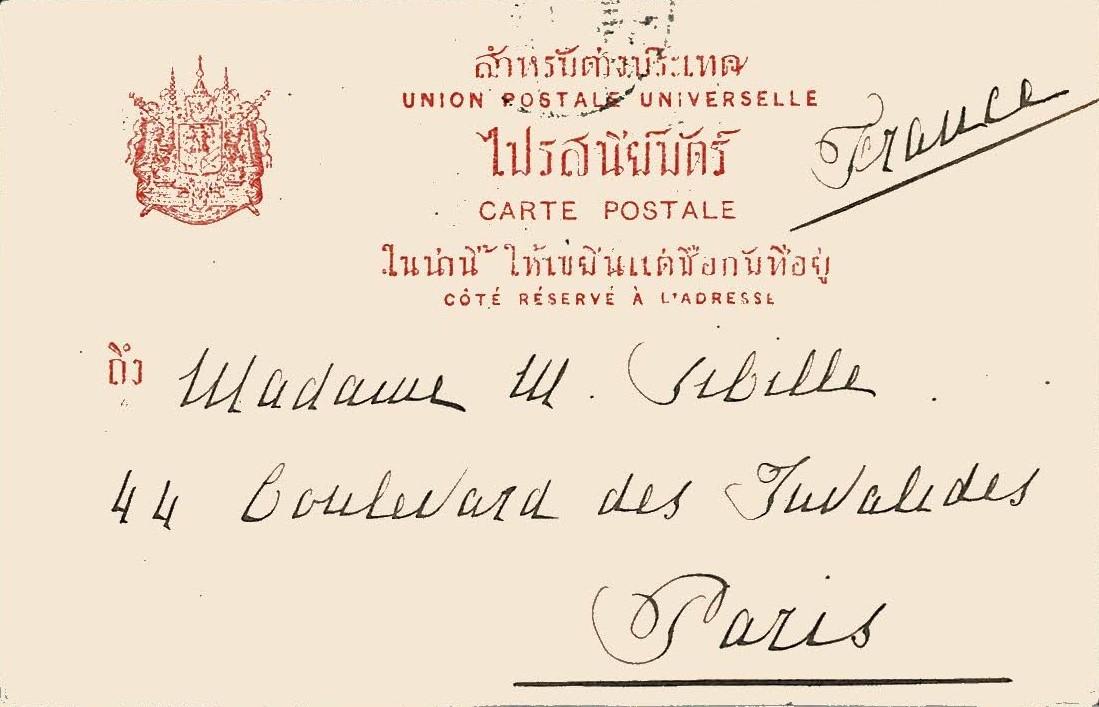 สำหรับต่างประเทศ
UNION POSTALE UNIVERSELLE
ไปรสนีย์บัตร์
CARTE POSTALE
France
ในน่านี้ ให้เขียนแต่ชื่อกับที่อยู่
CÔTÉ RÉSERVÉ À L'ADRESSE
ถึง Madame M. Sibille.
44 Boulevard des Invalides
Paris